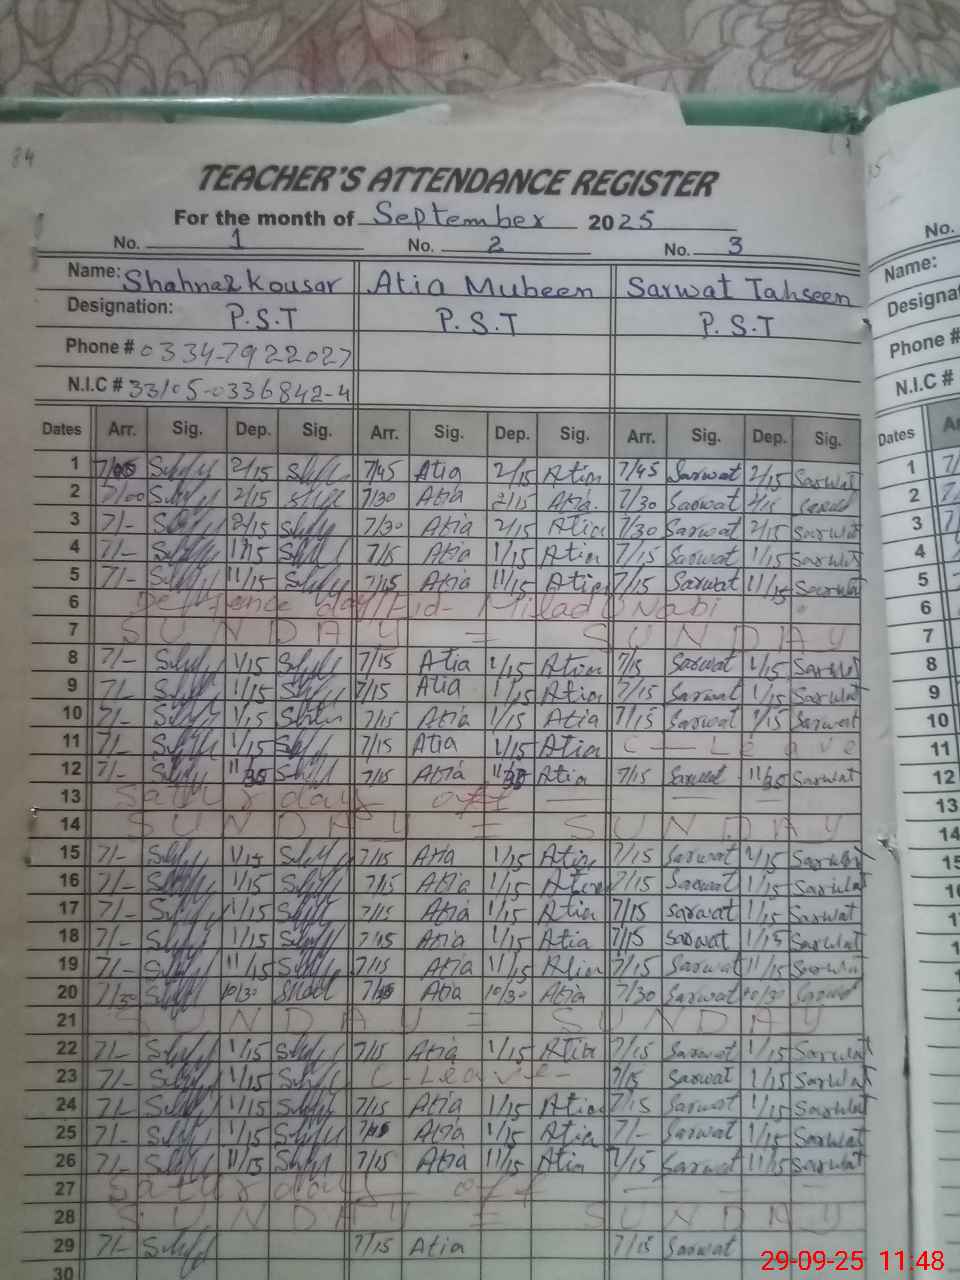 84
TEACHER'S ATTENDANCE REGISTER
For the month of September 2025
No. 1 No. 2 No. 3
Name: Shahnaz Kousar Atia Mubeen Sarwat Tahseen
Designation: P.S.T P.S.T P.S.T
Phone # 0334-7922027
N.I.C # 33105-0336842-4
Dates Arr. Sig. Dep. Sig. Arr. Sig. Dep. Sig. Arr. Sig. Dep. Sig.
1 2/15 7/45 Atia 2/15 Atia 7/45 Sarwat 2/15 Sarwat
2 2/15 7/30 Atia 2/15 Atia 7/30 Sarwat
3 7/- 2/15 7/30 Atia 2/15 Atia 7/30 Sarwat 2/15 Sarwat
4 7/- 1/15 7/15 Atia 1/15 Atia 7/15 Sarwat 1/15 Sarwat
5 7/- 11/15 7/15 Atia 11/15 Atia 7/15 Sarwat 11/15 Sarwat
6 Deffence day/Eid- Milad U Nabi
7 SUNDAY = SUNDAY
8 7/- 1/15 7/15 Atia 1/15 Atia 7/15 Sarwat 1/15 Sarwat
9 7/- 1/15 7/15 Atia 1/15 Atia 7/15 Sarwat 1/15 Sarwat
10 7/- 1/15 7/15 Atia 1/15 Atia 7/15 Sarwat 1/15 Sarwat
11 7/- 1/15 7/15 Atia 1/15 Atia C — Leave
12 7/- 7/15 Atia Atia 7/15 Sarwat Sarwat
13 Saturday off
14 SUNDAY = SUNDAY
15 7/- 1/15 7/15 Atia 1/15 Atia 7/15 Sarwat 1/15 Sarwat
16 7/- 1/15 7/15 Atia 1/15 Atia 7/15 Sarwat 1/15 Sarwat
17 7/- 1/15 7/15 Atia 1/15 Atia 7/15 Sarwat 1/15 Sarwat
18 7/- 1/15 7/15 Atia 1/15 Atia 7/15 Sarwat 1/15 Sarwat
19 7/- 11/15 7/15 Atia 11/15 Atia 7/15 Sarwat 11/15 Sarwat
20 7/30 10/30 Atia 10/30 Atia 7/30 Sarwat 10/30 Sarwat
21 SUNDAY = SUNDAY
22 7/- 1/15 7/15 Atia 1/15 Atia 7/15 Sarwat 1/15 Sarwat
23 7/- 1/15 C-Leave- 7/15 Sarwat 1/15 Sarwat
24 7/- 1/15 7/15 Atia 1/15 Atia 7/15 Sarwat 1/15 Sarwat
25 7/- 1/15 Atia 1/15 Atia 7/- Sarwat 1/15 Sarwat
26 7/- 11/15 7/15 Atia 11/15 Atia 7/15 Sarwat 11/15 Sarwat
27 Saturday off
28 SUNDAY = SUNDAY
29 7/- 7/15 Atia 7/15 Sarwat
30
No.
Name:
Phone #
N.I.C #
Dates
1
2
3
4
5
6
7
8
9
10
11
12
13
14
15
29-09-25 11:48